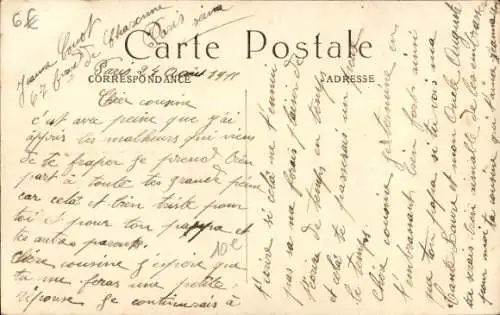 6€
Jeanne
67 Cours de Charonne
Paris 20ième
Carte Postale
CORRESPONDANCE
ADRESSE
Paris 24 1918
Chère cousine
c'est avec peine que j'ai
appris les malheurs qui viens
de te frapper je prend bien
part à toute tes grande peine
car cela et bien triste pour
toi et pour ton pappa et
tes autres parents.
Chère cousine j'espère que
tu me feras une petite
réponse je continuerais à
10€
t'écrire si cela ne t'ennui
pas sa me ferais plaisir de
t'écrire de temps en temps
et cela te passerais un peut
le temps.
Chère cousine je termine en
t'embrassant bien fort ainsi
que ton papa si tu vois ma
tante Laure et mon Oncle Auguste
tu serais bien aimable de les embrasser
pour moi ta cousine qui t'aime Jeanne